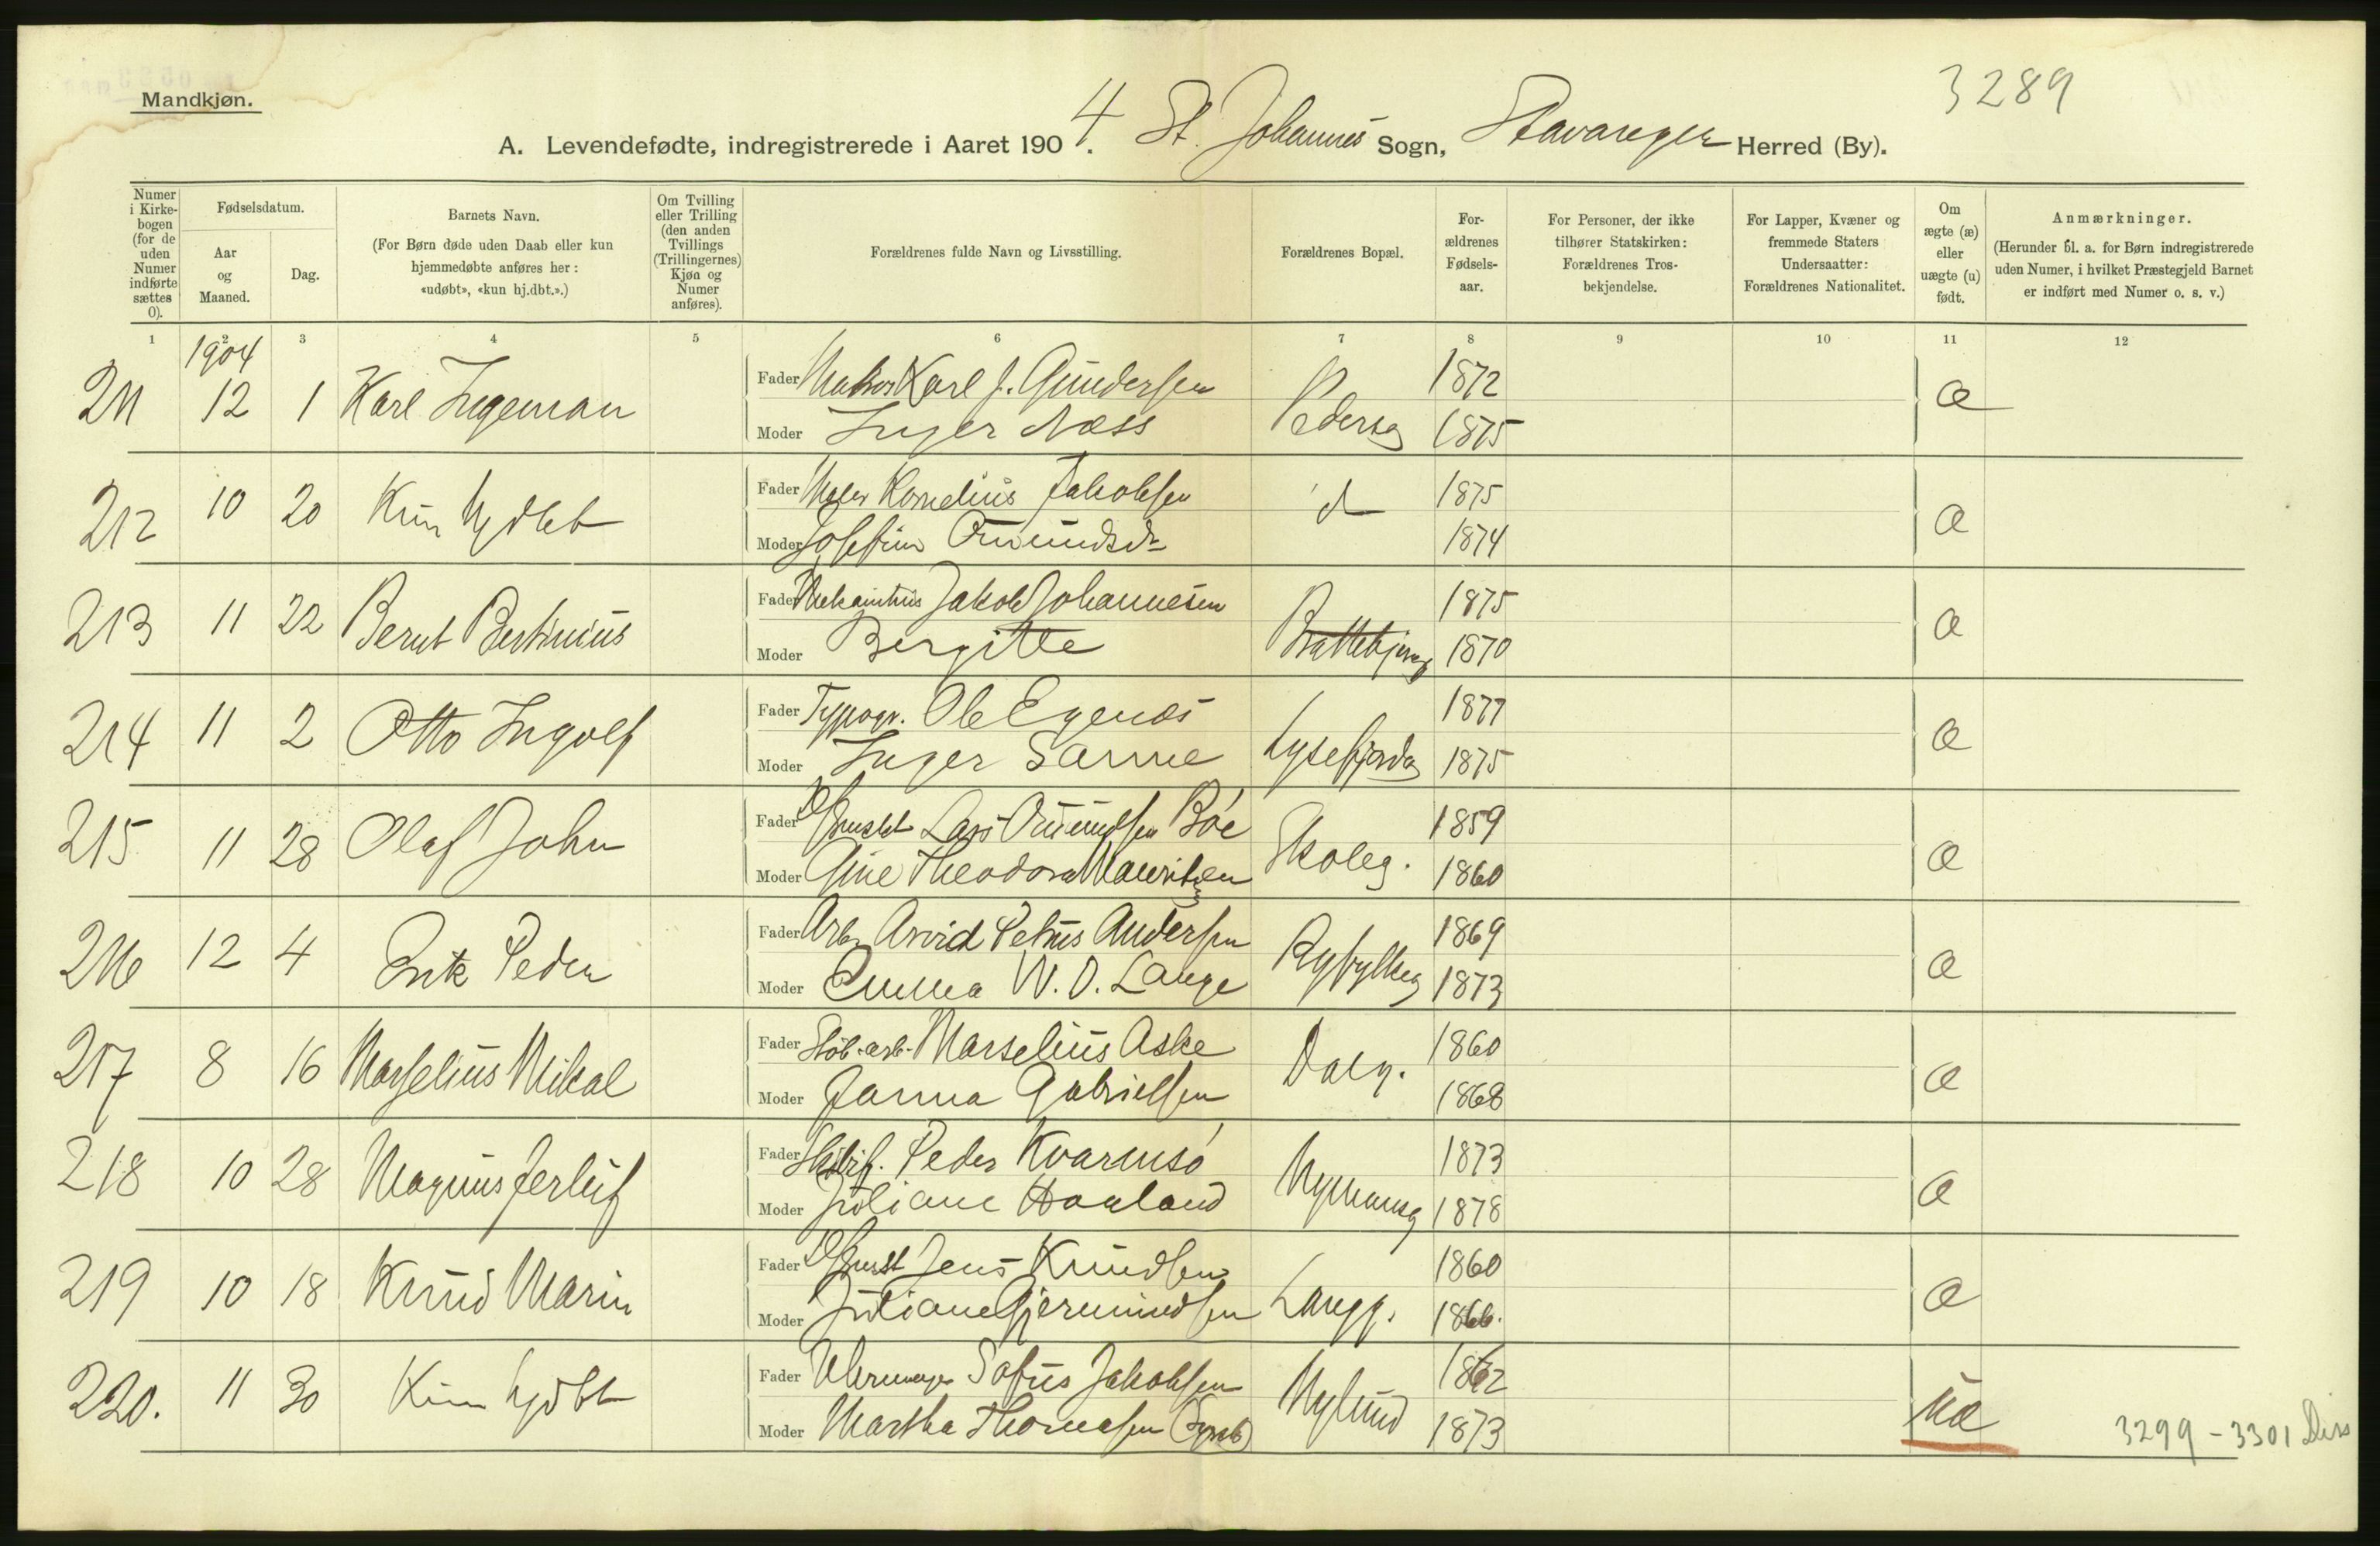 3289
Mandkjøn.
A. Levendefødte, indregistrerede i Aaret 1904. St. Johannes Sogn, Stavanger Herred (By).
Numer i Kirkebogen (for de uden Numer indførte sættes 0).
Fødselsdatum.
Aar og Maaned.
Dag.
Barnets Navn.
(For Børn døde uden Daab eller kun hjemmedøbte anføres her: «udøbt», «kun hj.dbt.».)
Om Tvilling eller Trilling (den anden Tvillings (Trillingernes) Kjøn og Numer anføres).
Forældrenes fulde Navn og Livsstilling.
Forældrenes Bopæl.
Forældrenes Fødselsaar.
For Personer, der ikke tilhører Statskirken: Forældrenes Trosbekjendelse.
For Lapper, Kvæner og fremmede Staters Undersaatter: Forældrenes Nationalitet.
Om ægte (æ) eller uægte (u) født.
Anmærkninger.
(Herunder bl. a. for Børn indregistrerede uden Numer, i hvilket Præstegjeld Barnet er indført med Numer o. s. v.)
1 2 3 4 5 6 7 8 9 10 11 12
1904
211 12 1 Karl Ingeman Fader Matros Karl J. Gundersen Pedersg 1872 æ
Moder Inger Næss 1875
212 10 20 Kun hjdbt Fader Maler Kornelius Jakobsen d 1875 æ
Moder Josefine Omundsdr 1874
213 11 22 Bernt Bertinius Fader Jakob Johannesen 1875 æ
Moder Bergitte 1870
214 11 2 Otto Ingolf Fader Typogr. Ole Egenæs Lysefjordg 1877 æ
Moder Inger Sanne 1875
215 11 28 Olaf John Fader Lars Omundsen Bøe Skoleg. 1859 æ
Moder Gine Theodora Mauritzen 1860
216 12 4 Erik Peder Fader Arb. Arvid Petrus Andersen Ryfylkeg 1869 æ
Moder Emma W. O. Lange 1873
217 8 16 Marselius Mikal Fader Støb.arb. Marselius Aske Dalg. 1860 æ
Moder Janna Gabrielsen 1868
218 10 28 Magnus Jerluf Fader Peder Kvarmsö Nymansg 1873 æ
Moder Juliane Haaland 1878
219 10 18 Knud Marin Fader Jens Knudsen Langg. 1860 æ
Moder Juliane Gjermundsen 1866.
220. 11 30 Kun hjdbt Fader Uhrmager Sofus Jakobsen Nylund 1862 uæ
Moder Martha Thomasen 1873
3299 - 3301 Diss